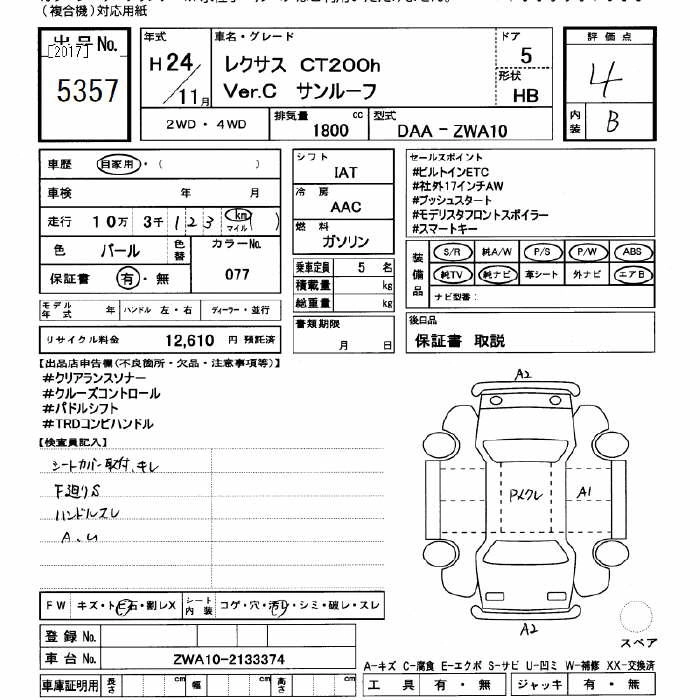 (複合機)対応用紙
出品No.
[2017]
5357
年式
H24/11月
車名・グレード
レクサス CT200h
Ver.C サンルーフ
ドア
5
形状
HB
評価点
4
内装
B
2WD・4WD
排気量
1800 cc
型式
DAA-ZWA10
車歴 自家用・( )
車検 年 月
走行 10万 3千 123 km(マイル)
色 パール 色替
カラーNo.
077
保証書 有・無
シフト
IAT
冷房
AAC
燃料
ガソリン
乗車定員 5 名
積載量 kg
総重量 kg
セールスポイント
#ビルトインETC
#社外17インチAW
#プッシュスタート
#モデリスタフロントスポイラー
#スマートキー
装備品
S/R 純A/W P/S P/W ABS
純TV 純ナビ 革シート 外ナビ エアB
ナビ型番:
モデル年式 年 ハンドル 左・右 ディーラー・並行
リサイクル料金 12,610 円 預託済
書類期限
月 日
後日品
保証書 取説
【出品店申告欄(不良箇所・欠品・注意事項等)】
#クリアランスソナー
#クルーズコントロール
#パドルシフト
#TRDコンビハンドル
【検査員記入】
シートカバー取付、キレ
下廻りS
ハンドルスレ
A、U
A2
Pメクレ
A1
A2
スペア
FW キズ・トビ石・割レX
シート内装 コゲ・穴・汚レ・シミ・破レ・スレ
登録No.
車台No. ZWA10-2133374
車庫証明用 長さ cm 幅 cm 高さ cm
A-キズ C-腐食 E-エクボ S-サビ U-凹ミ W-補修 XX-交換済
工具 有・無 ジャッキ 有・無